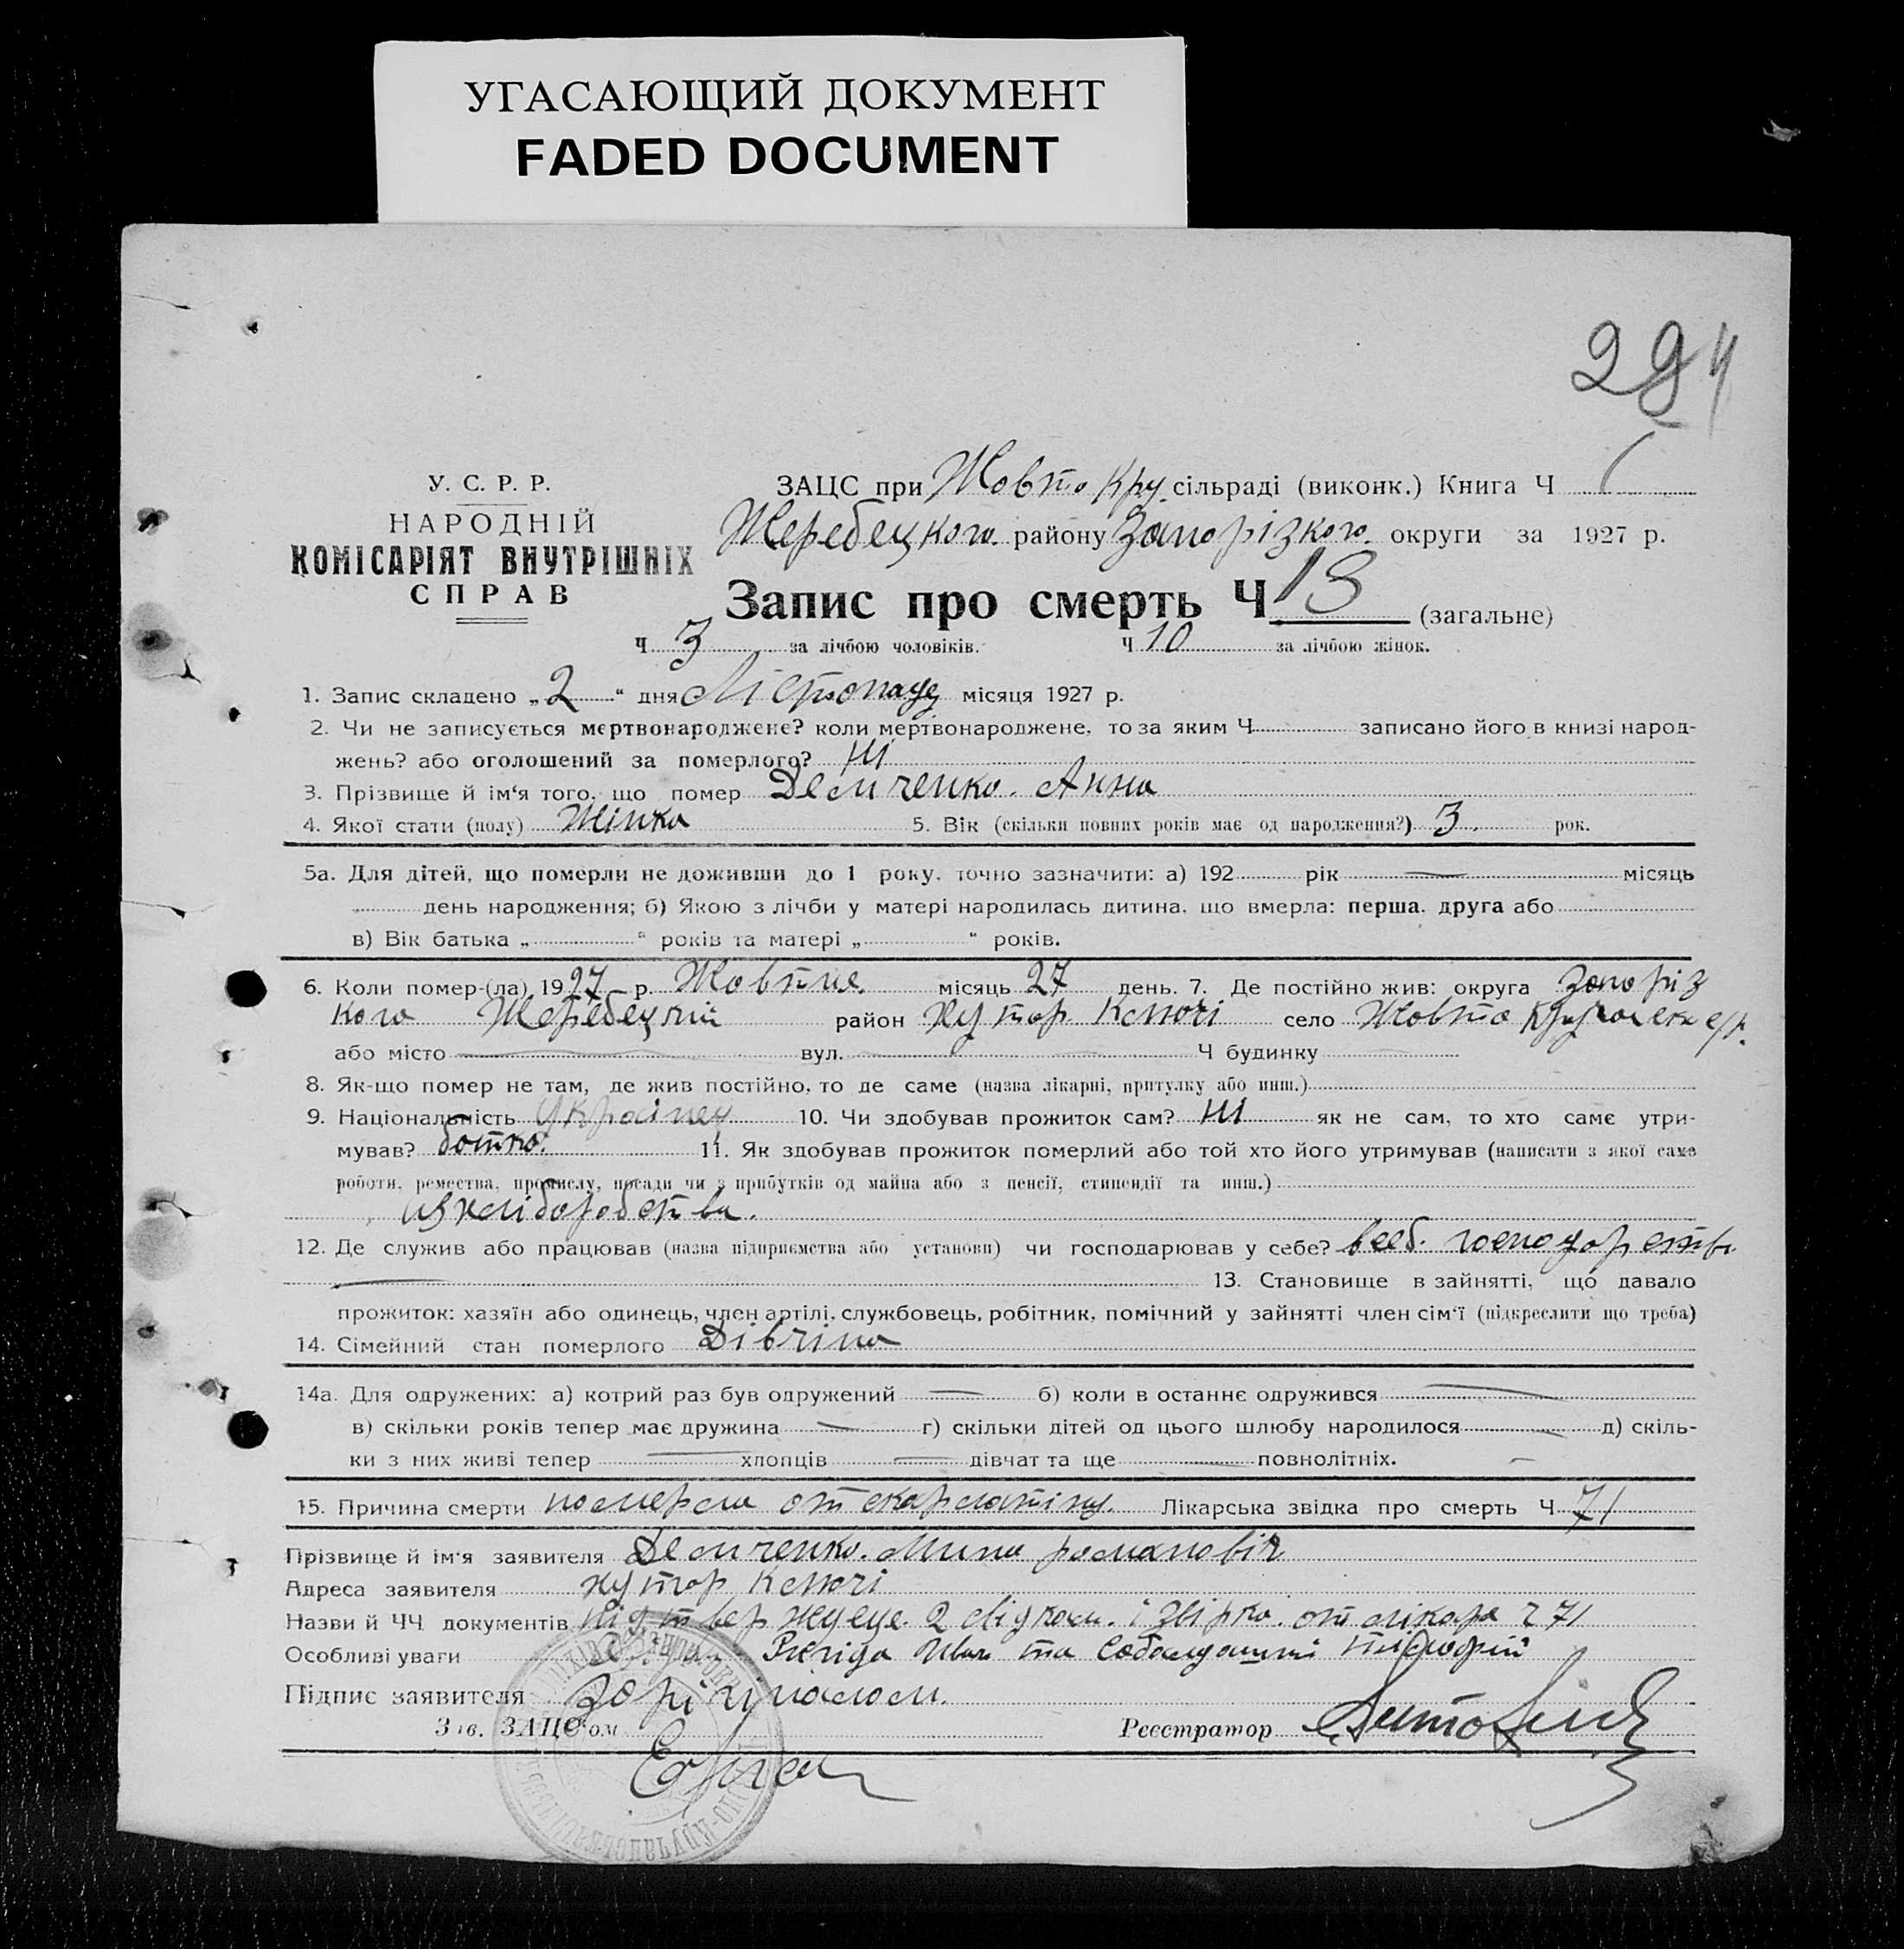 УГАСАЮЩИЙ ДОКУМЕНТ
FADED DOCUMENT
284
У. С. Р. Р.
НАРОДНІЙ
КОМІСАРІЯТ ВНУТРІШНІХ
СПРАВ
ЗАЦС при Жовто Кру. сільраді (виконк.) Книга Ч
Жеребецкого. району Запорізкого. округи за 1927 р.
Запис про смерть Ч 13 (загальне)
Ч 3 за лічбою чоловіків. Ч 10 за лічбою жінок.
1. Запис складено „2“ дня Лістопада місяця 1927 р.
2. Чи не записується мертвонароджене? коли мертвонароджене, то за яким Ч записано його в книзі народ-
жень? або оголошений за померлого? Ні
3. Прізвище й ім‘я того, що помер Демченко. Анна
4. Якої стати (полу) Жінка 5. Вік (скільки повних років має од народження?) 3. рок.
5а. Для дітей, що померли не доживши до 1 року, точно зазначити: а) 192 рік — місяць
день народження; б) Якою з лічби у матері народилась дитина, що вмерла: перша, друга або
в) Вік батька „ “ років та матері „ “ років.
6. Коли помер-(ла) 1927 р. Жовтня. місяць 27 день. 7. Де постійно жив: округа Запоріз
кого Жеребецкій район хутор Ключі село Жовто
або місто — вул. — Ч будинку —
8. Як-що помер не там, де жив постійно, то де саме (назва лікарні, притулку або инш.)
9. Національність Україпец 10. Чи здобував прожиток сам? Ні як не сам, то хто самє утри-
мував? батко. 11. Як здобував прожиток померлий або той хто його утримував (написати з якої саме
роботи, ремества, промислу, посади чи з прибутків од майна або з пенсії, стипендії та инш.)
изхліборобства.
12. Де служив або працював (назва підприємства або установи) чи господарював у себе? всеб. господарстві
— 13. Становище в зайнятті, що давало
прожиток: хазяїн або одинець, член артілі, службовець, робітник, помічний у зайнятті член сім‘ї (підкреслити що треба)
14. Сімейний стан померлого Дівчіна
14а. Для одружених: а) котрий раз був одружений — б) коли в останнє одружився —
в) скільки років тепер має дружина — г) скільки дітей од цього шлюбу народилося — д) скіль-
ки з них живі тепер — хлопців — дівчат та ще — повнолітніх. —
15. Причина смерти померла от скарлатіни. Лікарська звідка про смерть Ч 71
Прізвище й ім‘я заявителя Демченко. Мина романовіч
Адреса заявителя хутор Ключі
Назви й ЧЧ документів підтверждеце 2 свідками. і звірка. от лікаря ч 71
Особливі уваги Иван та
Підпис заявителя
Зав. ЗАЦС‘ом Реєстратор